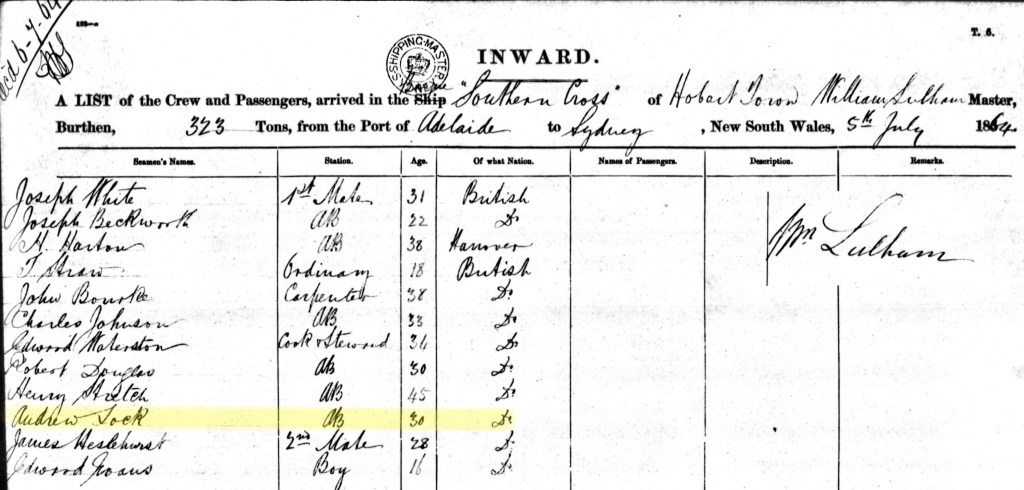 T. 6.
SHIPPING MASTER
INWARD.
Barque
A LIST of the Crew and Passengers, arrived in the Ship "Southern Cross" of Hobart Town William Lulham Master,
Burthen, 323 Tons, from the Port of Adelaide to Sydney, New South Wales, 5th July 1864
Seamen's Names. Station. Age. Of what Nation. Names of Passengers. Description. Remarks.
Joseph White 1st Mate 31 British
Joseph Beckworth AB 22 Do
H. Harton AB 38 Hanover
T. Straw Ordinary 18 British
John Bourke Carpenter 38 Do
Charles Johnson AB 33 Do
Edward Waterston Cook & Steward 34 Do
Robert Douglas AB 30 Do
Henry Stretch AB 45 Do
Andrew Lock AB 30 Do
James Heslehurst 2nd Mate 28 Do
Edward Evans Boy 16 Do
Wm Lulham